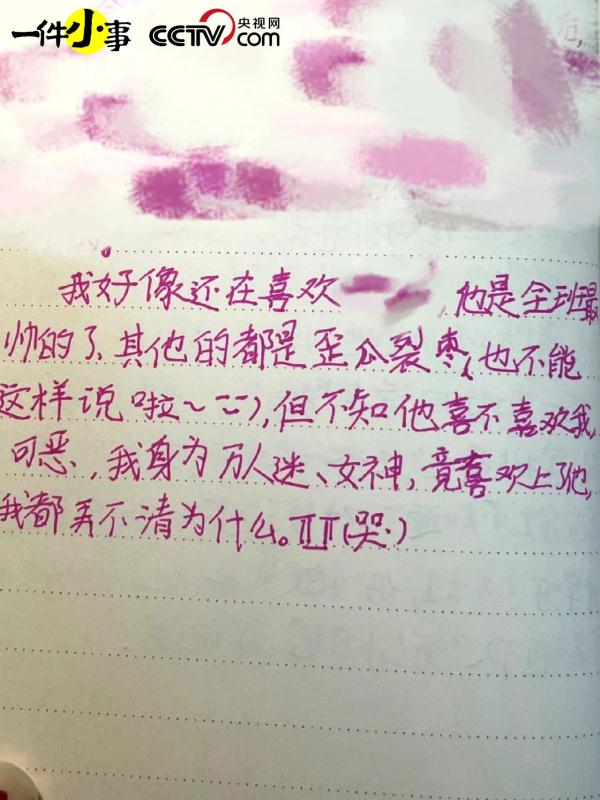 一件小事 CCTV 央视网
com
我好像还在喜欢 , 他是全班最
帅的了、其他的都是歪瓜裂枣,也不能
这样说啦~--), 但不知他喜不喜欢我,
可恶, 我身为万人迷、女神, 竟喜欢上了他,
我都弄不清为什么。TTTT(哭.)